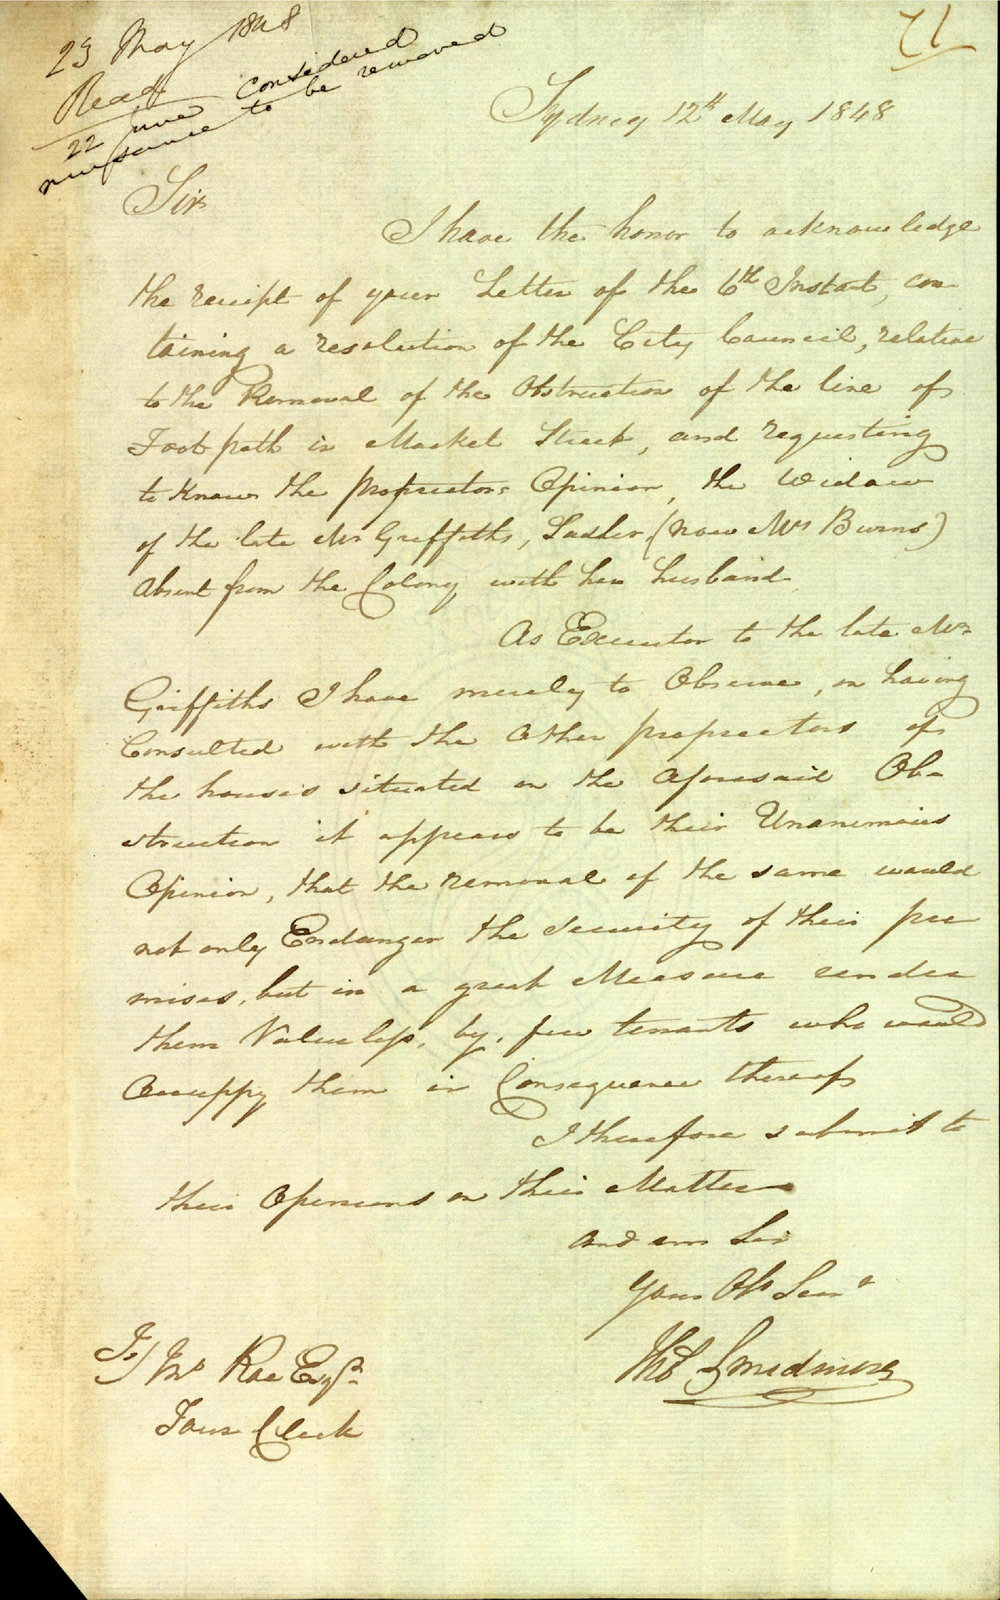 23 May 1848
Read
22 June considered
nuisance to be removed
71
Sydney 12th May 1848
Sir
I have the honor to acknowledge
the receipt of your Letter of the 6th Instant, con-
taining a resolution of the City Council, relative
to the Removal of the Obstruction of the line of
Foot path in Market Street, and requesting
to know the proprietors Opinion, the Widow
of the late Mr Griffiths, Sadler, (now Mrs Burns)
absent from the Colony with her husband.
As Executor to the late Mr
Griffiths I have merely to Observe, on having
Consulted with the Other proprietors of
the houses situated on the Aforesaid Ob-
struction it appears to be their Unanimous
Opinion, that the removal of the same would
not only Endanger the security of their pre
mises, but in a great Measure render
them Valueless, by, few tenants who would
Occuppy them in Consequence thereof
I therefore submit to
their Opinions on this Matter
and am Sir
Your Obt Servt
Thos Smidmore
To/ Jno Rae Esqr
Town Clerk